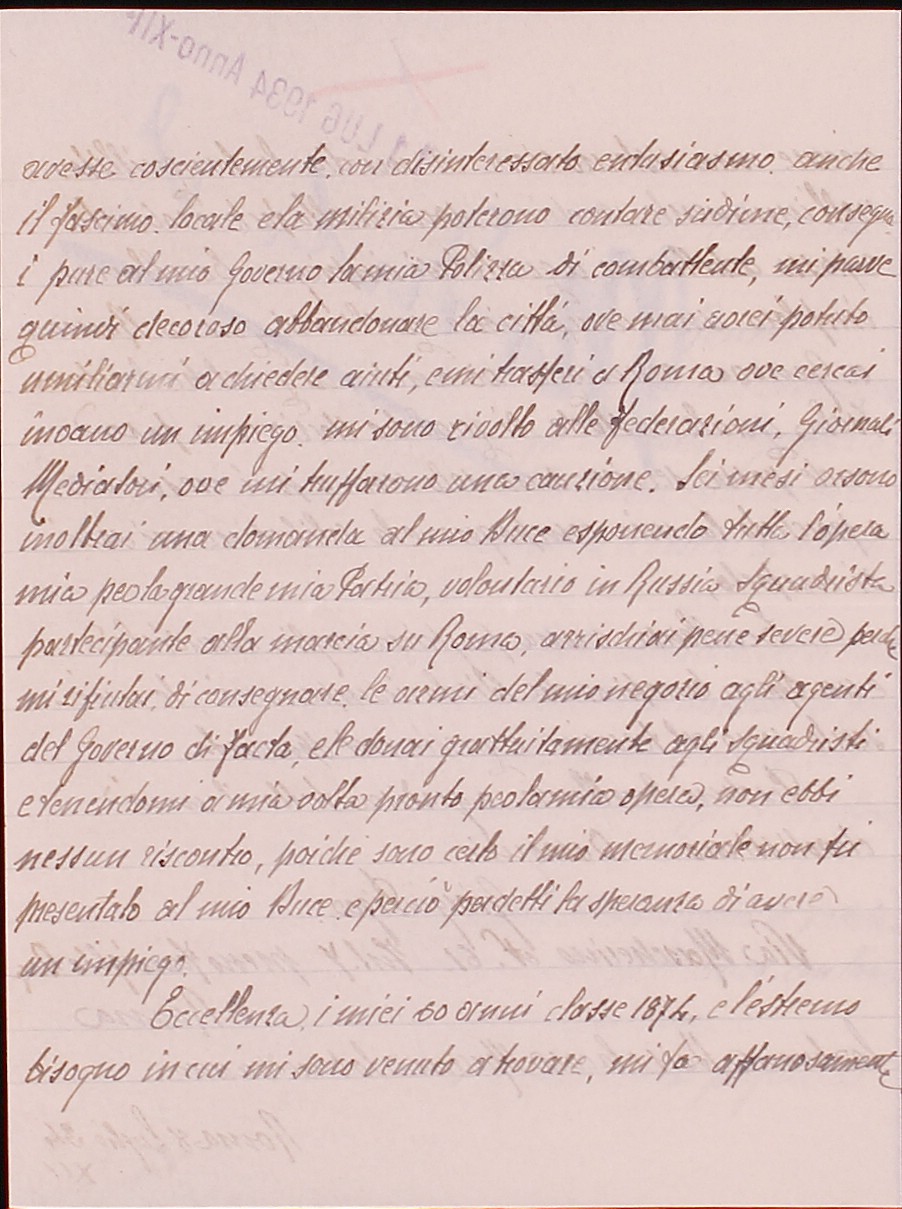 11 LUG 1934 Anno-XII
avesse coscientemente, con disinteressato entusiasmo. anche
il fascimo. locale e la milizia poterono contare su di me, consegna
i pure al mio Governo la mia Polizza di combattente, mi parve
quindi decoroso abbandonare la città, ove mai avrei potuto
umiliarmi a chiedere aiuti, e mi trasferi a Roma ove cercai
invano un impiego. mi sono rivolto alle federazioni, Giornali
Mediatori, ove mi truffarono una cauzione. Sei mesi orsono
inoltrai una domanda al mio Duce esponendo tutta l'opera
mia per la grande mia Patria, volontario in Russia Squadrista
partecipante alla marcia su Roma, arrischiai pene severe perche
mi rifiutai di consegnare le armi del mio negozio agli agenti
del Governo di Facta, e le donai gratuitamente agli squadristi
e tenendomi a mia volta pronto per la mia opera, non ebbi
nessun riscontro, poiché sono certo il mio memoriale non fu
presentato al mio Duce e perciò perdetti la speranza di avere
un impiego.
Eccellenza, i miei 60 anni classe 1874, e l'éstremo
bisogno in cui mi sono venuto a trovare, mi fa affanosamente